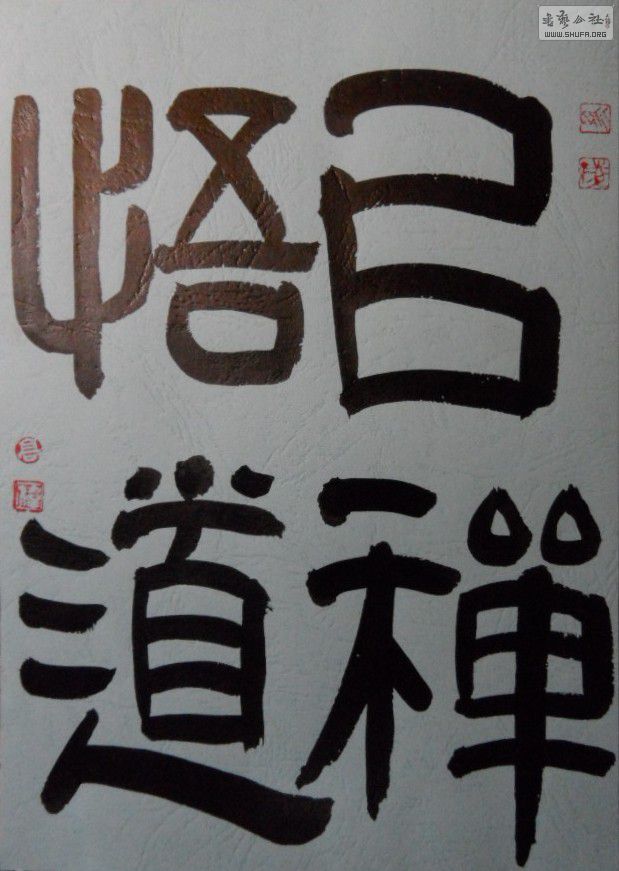 㠯禪
悟道
書藝公社
WWW.SHUFA.ORG